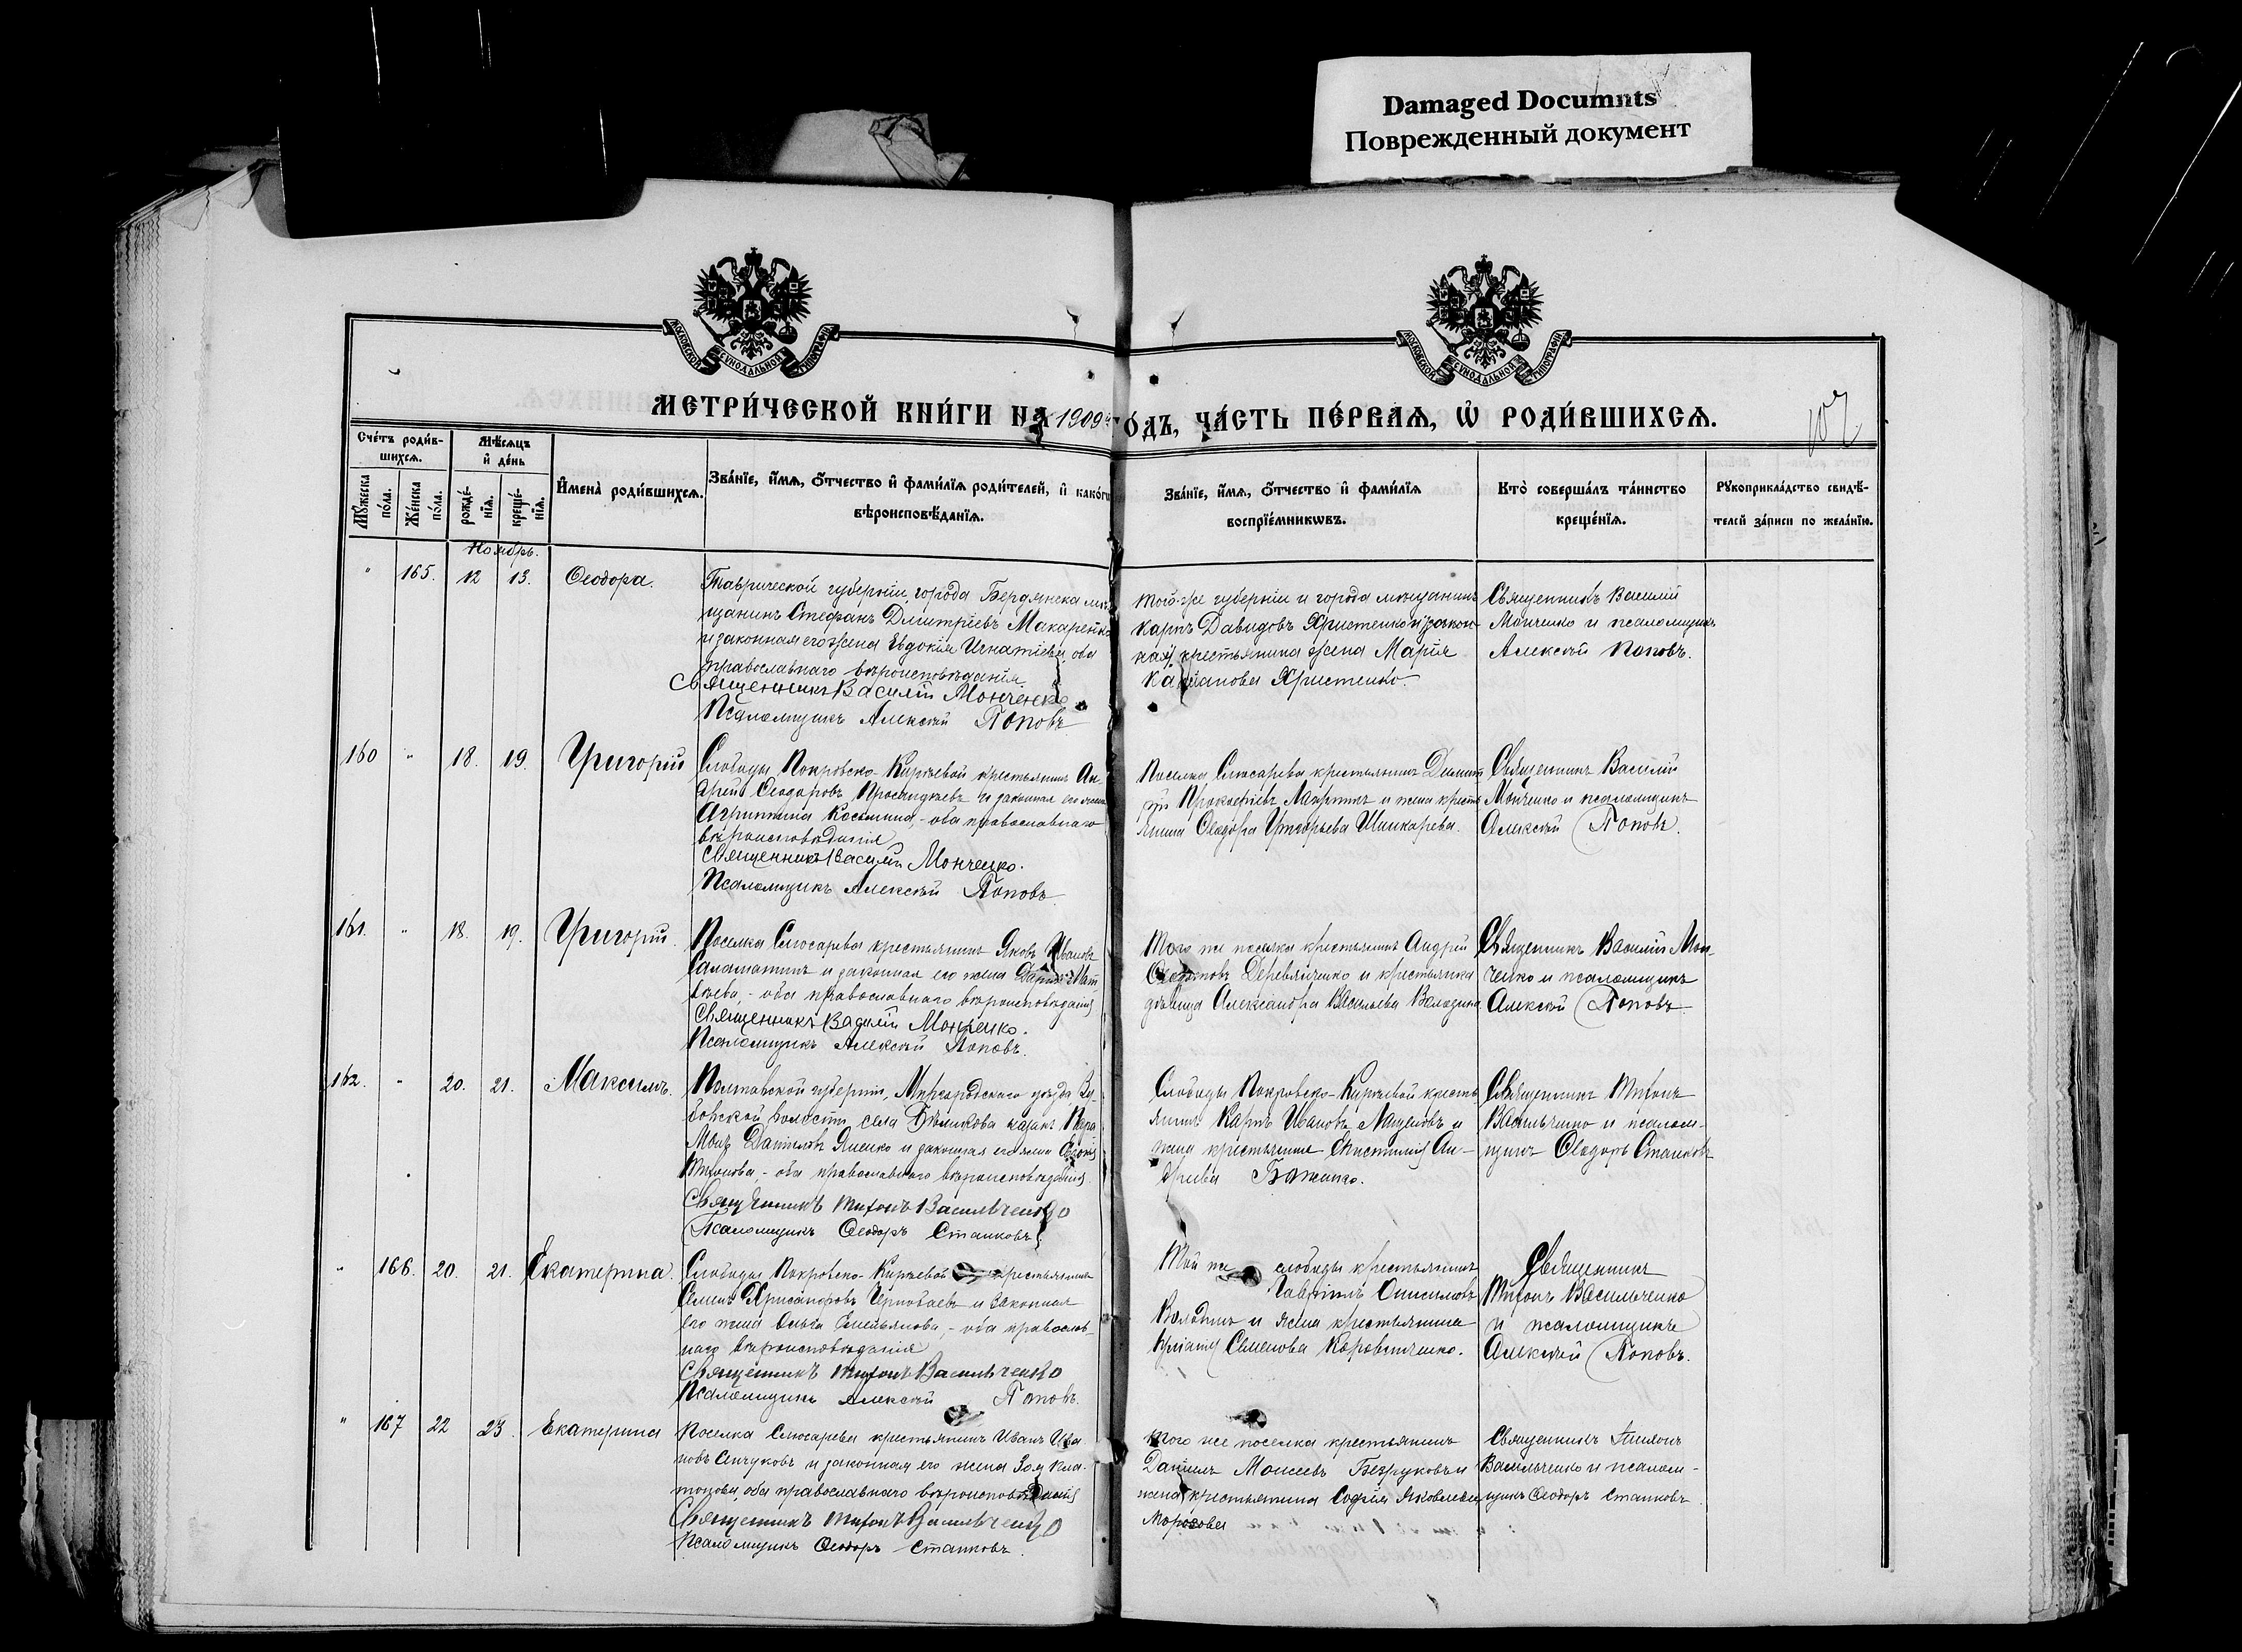 Damaged Documnts
Поврежденный документ
МОСКОВСКОЙ СѴНОДАЛЬНОЙ ТИПОГРАФІИ
МОСКОВСКОЙ СѴНОДАЛЬНОЙ ТИПОГРАФІИ
МЕТРИ́ЧЕСКОЙ КНИ́ГИ НА 1909 ГО́ДЪ, ЧА́СТЬ ПЕ́РВАѦ, Ѡ҆ РОДИ́ВШИХСѦ.
107
Сче́тъ роди́в-
шихсѧ.
Мѣ́сѧцъ
и҆ де́нь
Мꙋ́жеска
по́ла.
Же́нска
по́ла.
рожде́-
нїѧ.
креще́-
нїѧ.
И҆мена̀ роди́вшихсѧ.
Зва́нїе, и҆́мѧ, ѻ҆́тчество и҆ фами́лїѧ роди́телей, и҆ како́гѡ
вѣроисповѣ́данїѧ.
Зва́нїе, и҆́мѧ, ѻ҆́тчество и҆ фами́лїѧ
воспрїе́мникѡвъ.
Кто̀ соверша́лъ та́инство
креще́нїѧ.
Рꙋкоприкла́дство свидѣ́-
телей за́писи по жела́нїю.
Ноябрь.
" 165. 12 13. Ѳеодора.
Таврической губерніи, города Бердянска мѣ-
щанинъ Стефанъ Димитріевъ Макаренко
и законная его жена Евдокія Игнатіева, оба
православнаго вѣроисповѣданія
Священникъ Василій Монченко
Псаломщикъ Алексѣй Поповъ
Того-же губерніи и города мѣщанинъ
Карпъ Давидовъ Христенко и
крестьянина жена Марія
Христенко.
Священникъ Василій
Монченко и псаломщикъ
Алексѣй Поповъ.
160 " 18. 19. Григорій
Слободы Покровско-Кирѣевой крестьянинъ Ан-
дрей Ѳеодоровъ и законная его жена
Агриппина Косьмина, - оба православнаго
вѣроисповѣданія
Священникъ Василій Монченко.
Псаломщикъ Алексѣй Поповъ
Поселка Слюсарева крестьянинъ Димит-
рій Прокофіевъ и жена кресть-
янина Ѳеодора Григорьева Шинкарева.
Священникъ Василій
Монченко и псаломщикъ
Алексѣй Поповъ.
161. " 18. 19. Григорій.
Поселка Слюсарева крестьянинъ Яковъ Ивановъ
Саламатинъ и законная его жена Дарія Мат-
вѣева, - оба православнаго вѣроисповѣданія
Священникъ Василій Монченко.
Псаломщикъ Алексѣй Поповъ.
Того же поселка крестьянинъ Андрей
Деревянченко и крестьянка
дѣвица Александра Васильева Володина.
Священникъ Василій Мон-
ченко и псаломщикъ
Алексѣй Поповъ
162. " 20. 21. Максимъ.
Полтавской губерніи, Миргородскаго уѣзда
волости, села казакъ
Даніиловъ Яненко и законная его жена
оба православнаго вѣроисповѣданія.
Священникъ Тихонъ Васильченко
Псаломщикъ Ѳеодоръ Станковъ
Слободы Покровско-Кирѣевой кресть-
янинъ Карпъ Ивановъ и
жена крестьянина Ан-
дреева Баженко.
Священникъ Тихонъ
Васильченко и псалом-
щикъ Ѳеодоръ Станковъ
" 166. 20. 21. Екатерина.
Слободы Покровско-Кирѣевой крестьянинъ
Семенъ Хрисанфовъ Чернобаевъ и законная
его жена Ольга Емельянова, - оба православ-
наго вѣроисповѣданія
Священникъ Тихонъ Васильченко
Псаломщикъ Алексѣй Поповъ.
Той же слободы крестьянинъ
Гавріилъ Онисимовъ
Володинъ и жена крестьянина
Семенова
Священникъ
Тихонъ Васильченко
и псаломщикъ
Алексѣй Поповъ.
" 167 22 23. Екатерина
Поселка Слюсарева крестьянинъ Иванъ Ива-
новъ и законная его жена Зоя Пла-
тонова, оба православнаго вѣроисповѣданія
Священникъ Тихонъ Васильченко
Псаломщикъ Ѳеодоръ Станковъ.
Того же поселка крестьянинъ
Даніилъ Моисеевъ Безруковъ и
жена крестьянина Софія Яковлева
Морозова
Священникъ Тихонъ
Васильченко и псалом-
щикъ Ѳеодоръ Станковъ